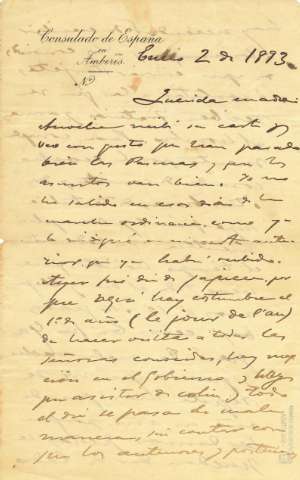 Consulado de España
en
Amberes.
Nº
Enero 2 de 1893
Querida madre:
Anoche recibí su carta y
veo con gusto que han pasado
bien las Pascuas, y que los
asuntos van bien. Yo no
he salido en esos días de la
manera ordinaria, como ya
le en mi carta ante
rior, que ya habrá recibido.
Ayer fué día de por
que aquí hay costumbre el
1º de año (le jour de l'an)
de hacer visita a todas las
señoras conocidas, hay recep
ción en el Gobierno y
y todo
el día se pasa de mala
manera, sin contar con
que los anteriores y